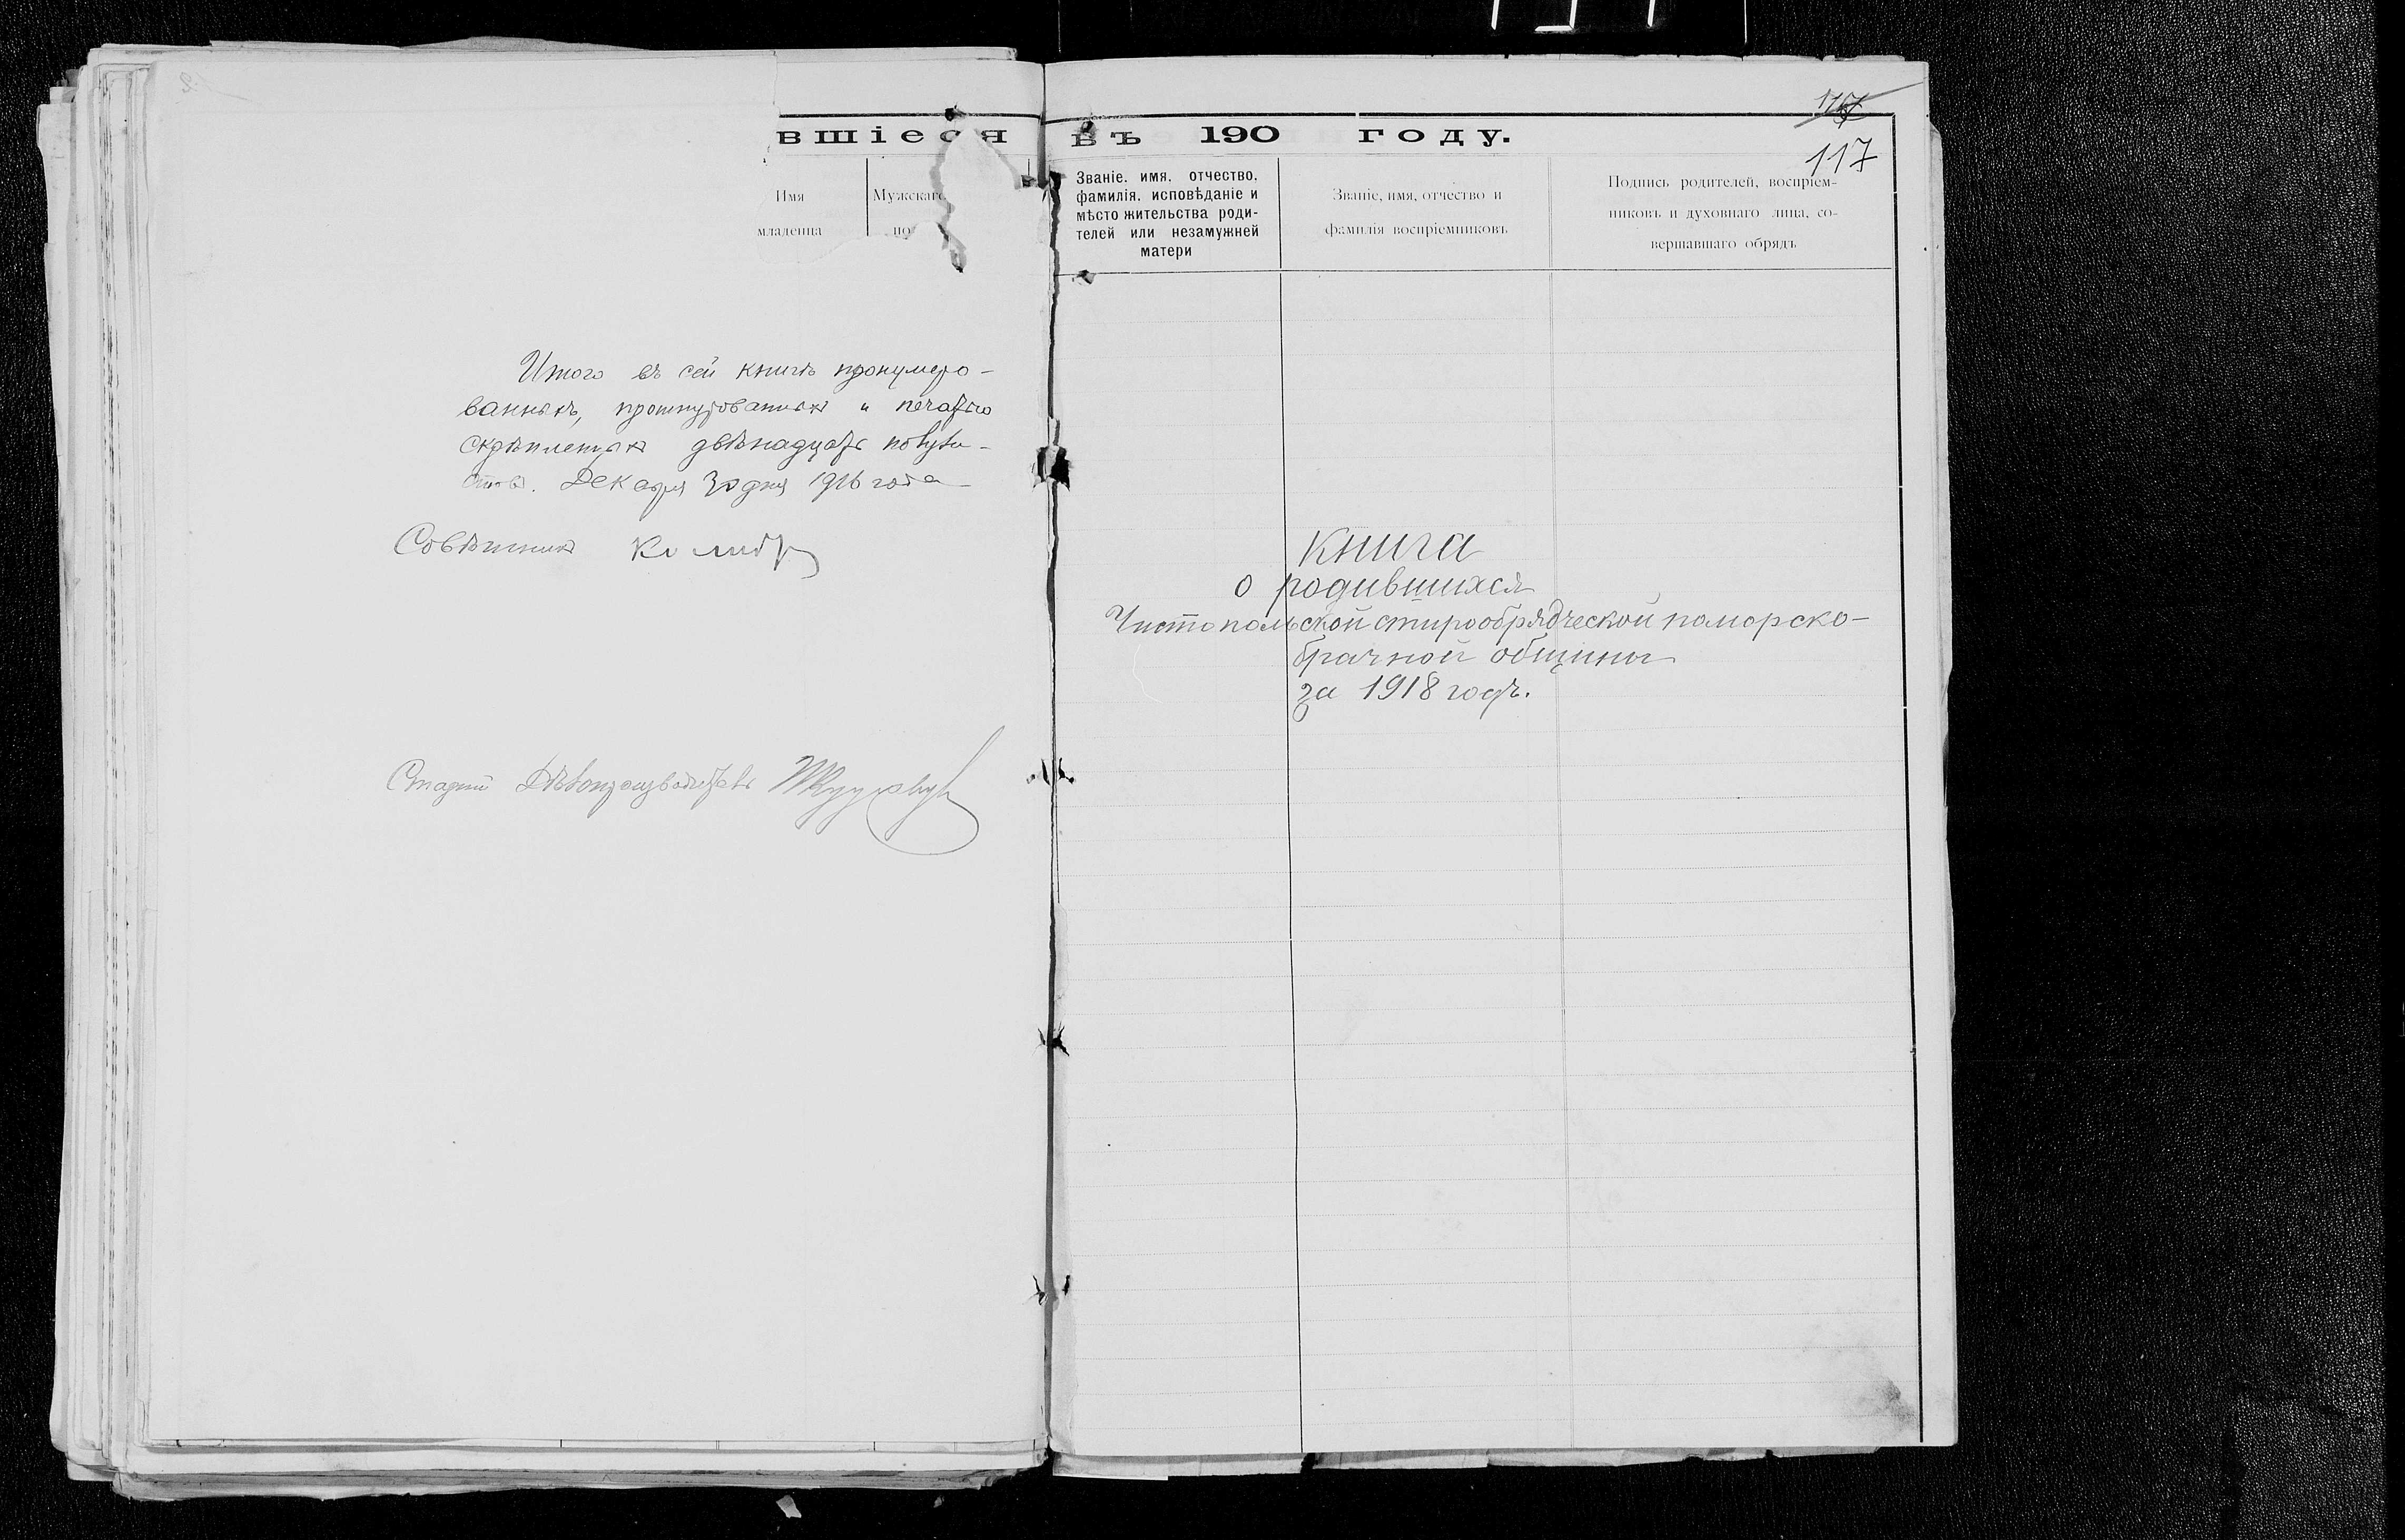 вшіеся въ 190 году.
117
Имя
младенца
Мужскаго
по
Званіе, имя, отчество,
фамилія, исповѣданіе и
мѣсто жительства роди-
телей или незамужней
матери
Званіе, имя, отчество и
фамилія воспріемниковъ
Подпись родителей, воспріем-
никовъ и духовнаго лица, со-
вершавшаго обрядъ
Итого въ сей книгѣ пронумеро-
ванныхъ, прошнурованныхъ и печатью
скрѣпленныхъ двѣнадцать полули-
стовъ. Декабря 30 дня 1916 года
Совѣтникъ
Старшій Дѣлопроизводитель
Книга
о родившихся
Чистопольской старообрядческой поморско-
брачной общины
за 1918 годъ.